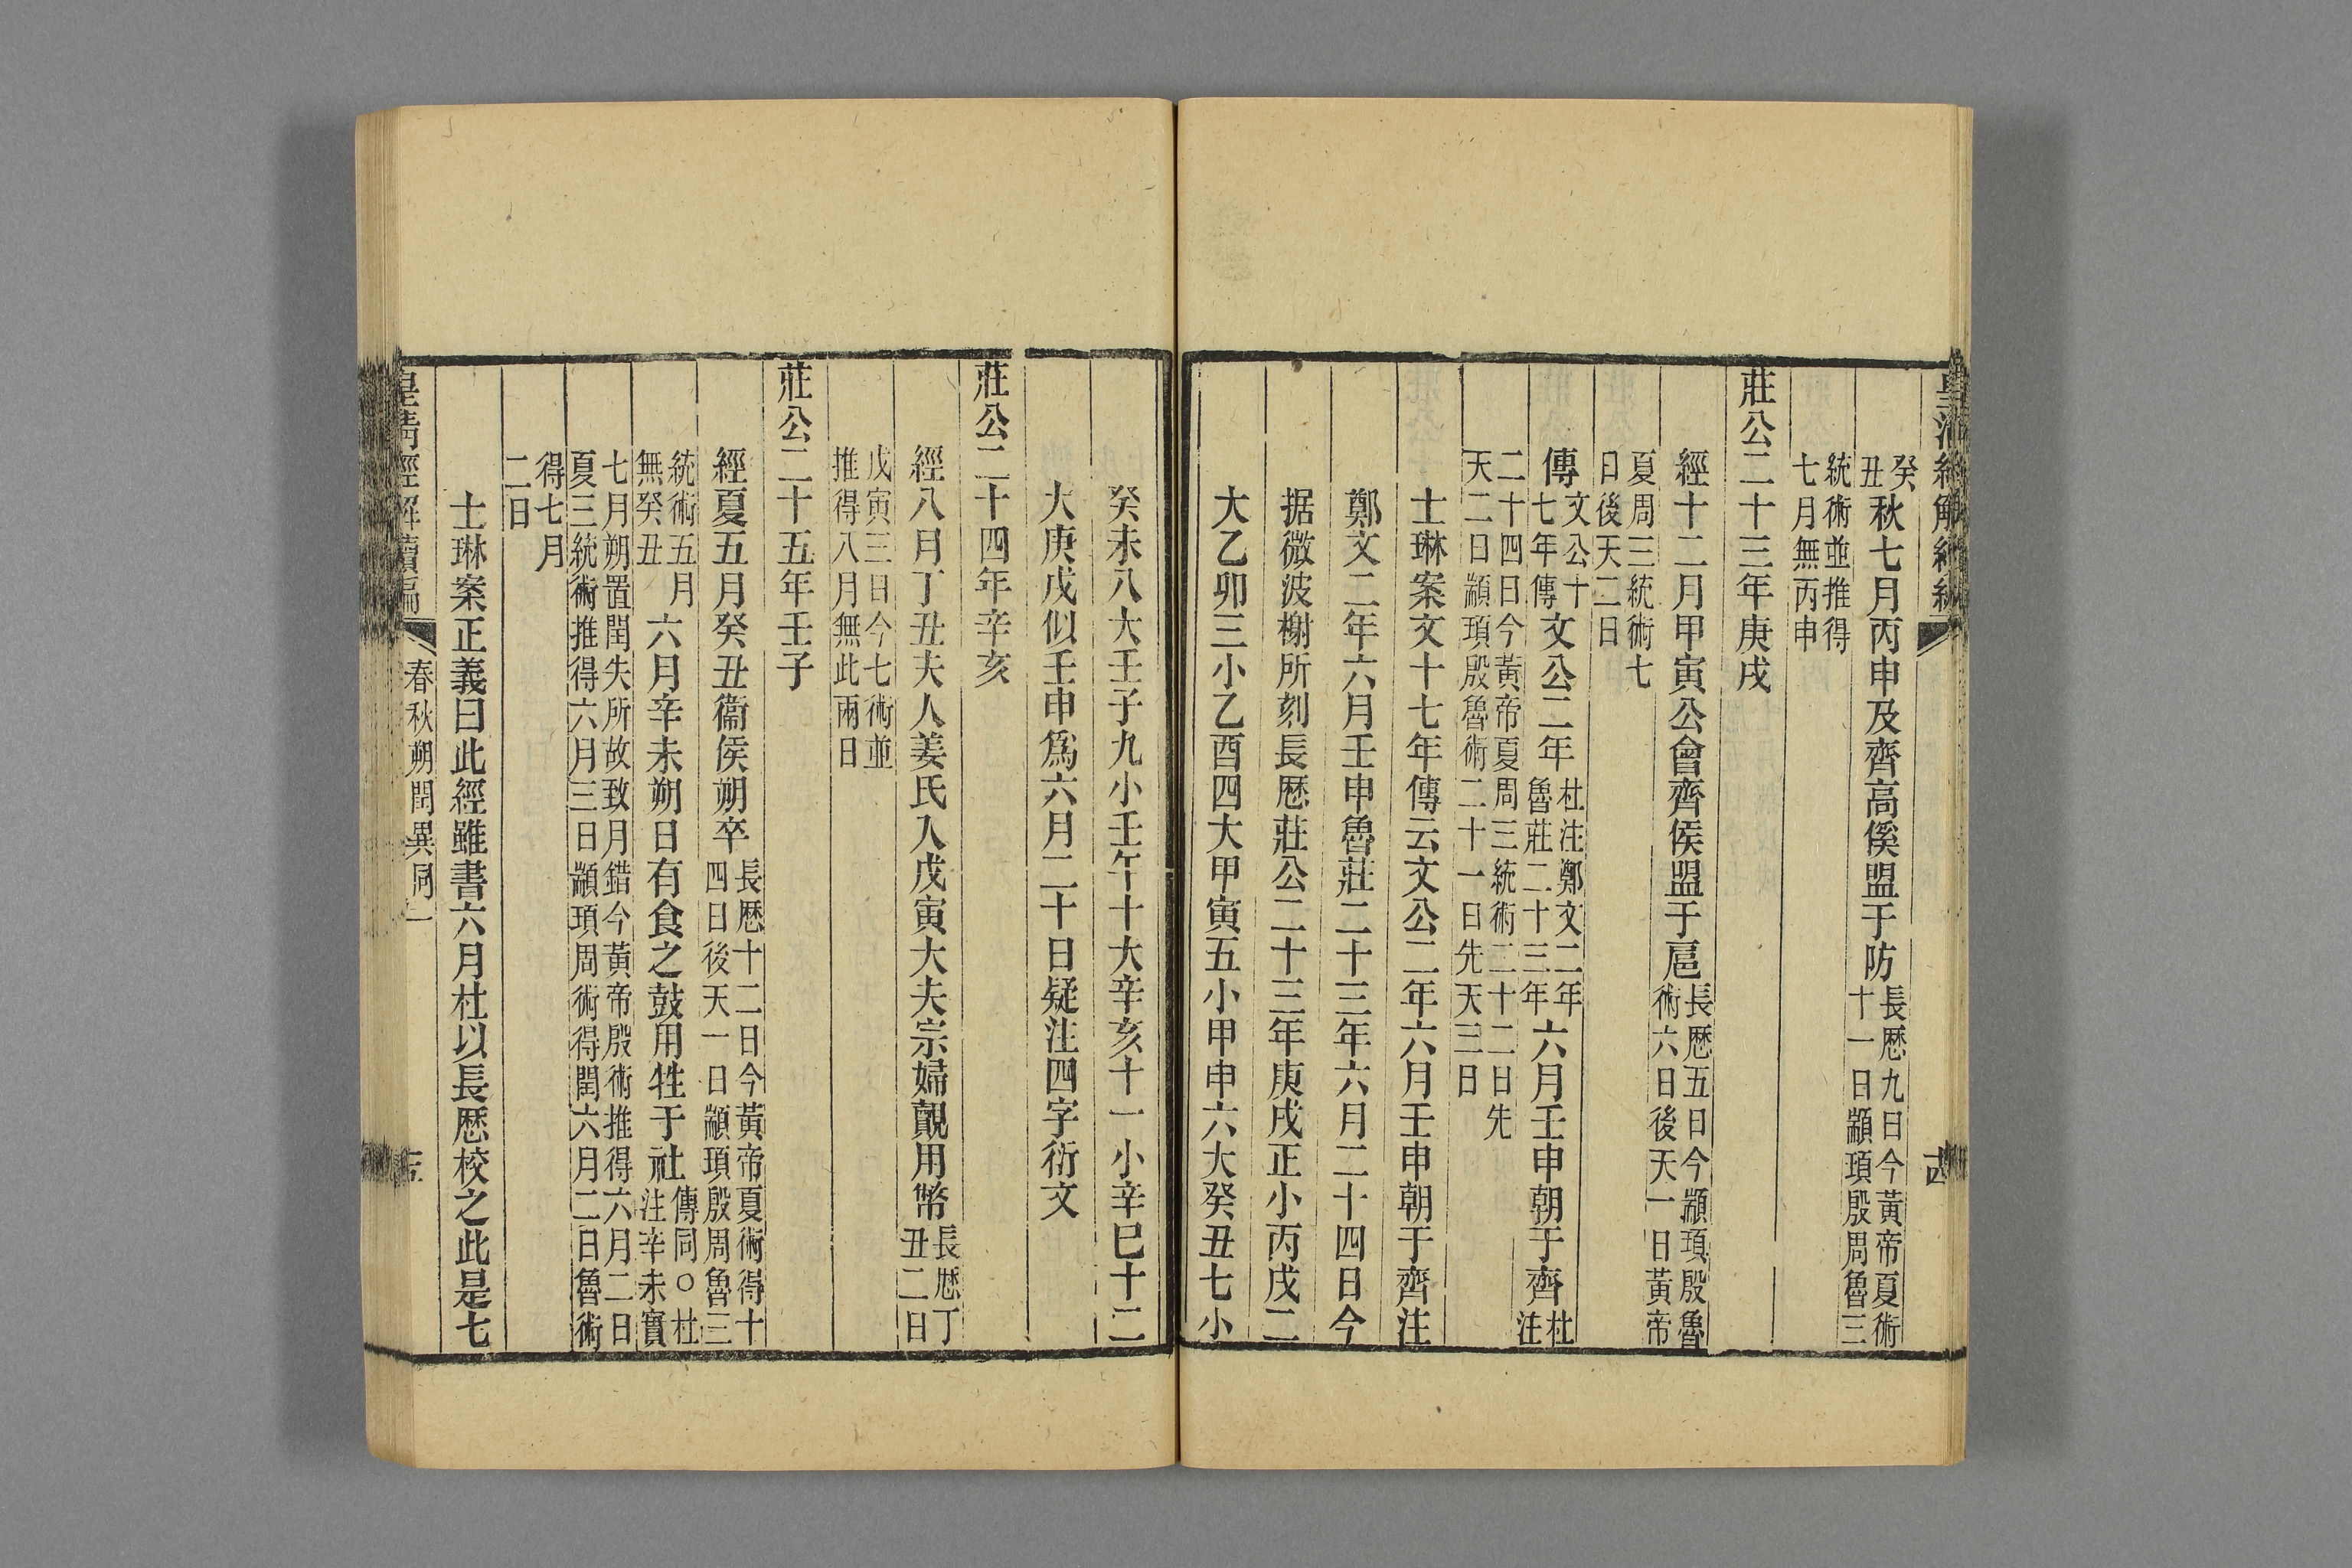 皇清經解續編
癸丑秋七月丙申及齊高傒盟于防長厯九日今黃帝夏術十一日顓頊殷周魯三
統術並推得七月無丙申
莊公二十三年庚戌
經十二月甲寅公會齊侯盟于扈長厯五日今顓頊殷魯術六日後天一日黃帝
夏周三統術七日後天二日
傳文公十七年傳文公二年杜注鄭文二年魯莊二十三年六月壬申朝于齊杜注
二十四日今黃帝夏周三統術二十二日先天二日顓頊殷魯術二十一日先天三日
士琳案文十七年傳云文公二年六月壬申朝于齊注
鄭文二年六月壬申魯莊二十三年六月二十四日今
据微波榭所刻長厯莊公二十三年庚戌正小丙戌二
大乙卯三小乙酉四大甲寅五小甲申六大癸丑七小
癸未八大壬子九小壬午十大辛亥十一小辛巳十二
大庚戌似壬申爲六月二十日疑注四字衍文
莊公二十四年辛亥
經八月丁丑夫人姜氏入戊寅大夫宗婦覿用幣長厯丁丑二日
戊寅三日今七術並推得八月無此兩日
莊公二十五年壬子
經夏五月癸丑衞侯朔卒長厯十二日今黃帝夏術得十四日後天一日顓頊殷周魯三
統術五月無癸丑六月辛未朔日有食之鼓用牲于社傳同○杜注辛未實
七月朔置閏失所故致月錯今黃帝殷術推得六月二日夏三統術推得六月三日顓頊周術得閏六月二日魯術
得七月二日
士琳案正義曰此經雖書六月杜以長厯校之此是七
皇清經解續編
春秋朔閏異同一